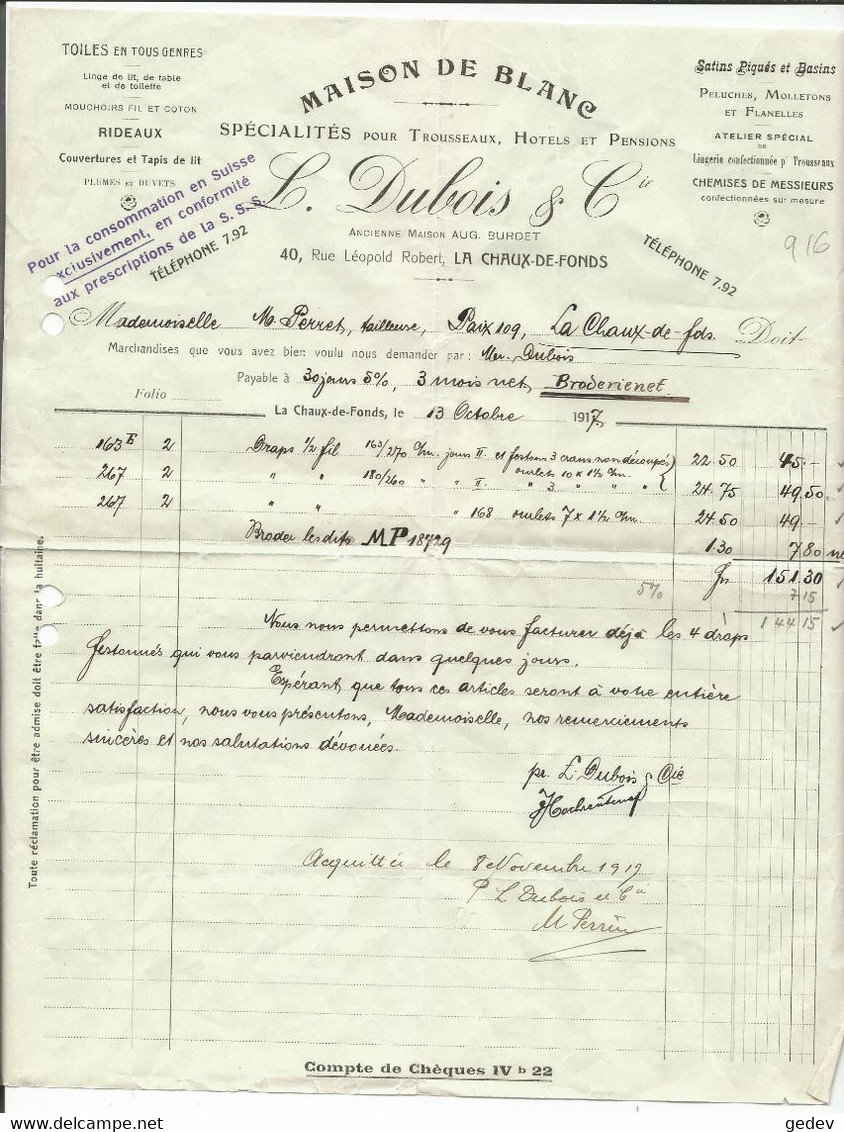 TOILES EN TOUS GENRES
Linge de lit, de table
et de toilette
MOUCHOIRS FIL ET COTON
RIDEAUX
Couvertures et Tapis de lit
PLUMES ET DUVETS
MAISON DE BLANC
SPÉCIALITÉS POUR TROUSSEAUX, HOTELS ET PENSIONS
L. Dubois & Cie
ANCIENNE MAISON AUG. BURDET
40, Rue Léopold Robert, LA CHAUX-DE-FONDS
Satins Piqués et Basins
PELUCHES, MOLLETONS
ET FLANELLES
ATELIER SPÉCIAL
DE
Lingerie confectionnée pr Trousseaux
CHEMISES DE MESSIEURS
confectionnées sur mesure
Pour la consommation en Suisse
exclusivement, en conformité
aux prescriptions de la S. S. S.
TÉLÉPHONE 7.92
TÉLÉPHONE 7.92
916
Mademoiselle M. Perret, tailleuse, Paix 109, La Chaux-de-fds. Doit
Marchandises que vous avez bien voulu nous demander par : Mer. Dubois
Payable à 30 jours 5%, 3 mois net, Broderie net
Folio
La Chaux-de-Fonds, le 13 Octobre 1917.
163 E 2 Draps 1/2 fil 163/270 c/m. jours II. et festons 3 crans non découpés 22.50 45.-
267 2 " " 180/260 " " II. " 3 " " " 24.75 49.50
ourlets 10 x 1 1/2 c/m.
267 2 " " " 168 ourlets 7 x 1 1/2 c/m. 24.50 49.-
Broder les dits MP 18729 1.30 7.80 net
frs 151.30
5% 7 15
144 15
Nous nous permettons de vous facturer déjà les 4 draps
festonnés qui vous parviendront dans quelques jours.
Espérant que tous ces articles seront à votre entière
satisfaction, nous vous présentons, Mademoiselle, nos remerciements
sincères et nos salutations dévouées.
pr. L. Dubois & Cie
Acquittée le 8 Novembre 1917
P L Dubois et Cie
M Perrin
Toute réclamation pour être admise doit être faite dans la huitaine.
Compte de Chèques IV b 22
www.delcampe.net
gedev